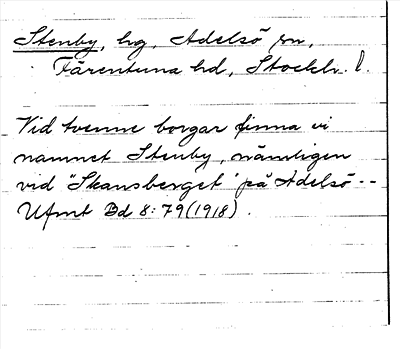 Stenby, hg, Adelsö sn,
Färentuna hd, Stockh. l.
Vid tvenne borgar finna vi
namnet Stenby, nämligen
vid "Skansberget" på Adelsö --
Ufmt Bd 8:79 (1918).